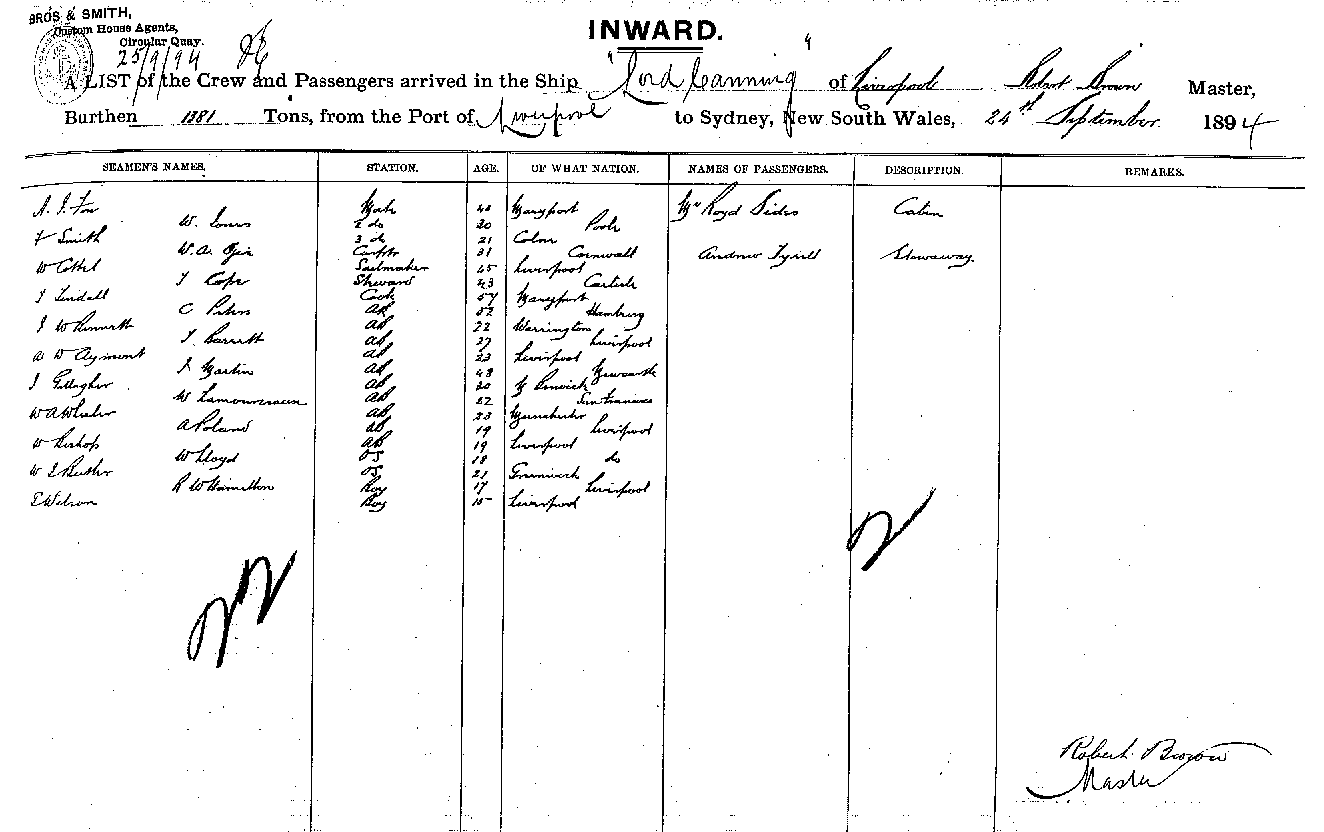 BROS & SMITH,
Custom House Agents,
Circular Quay.
25/9/94
INWARD.
A LIST of the Crew and Passengers arrived in the Ship "Lord Canning" of Liverpool Robert Brown Master,
Burthen 1381 Tons, from the Port of Liverpool to Sydney, New South Wales, 24th September 1894
SEAMEN'S NAMES. STATION. AGE. OF WHAT NATION. NAMES OF PASSENGERS. DESCRIPTION. REMARKS.
Mate Maryport Mr Royd Sides Cabin
W. 2 do 30 Poole
F Smith 3 do 21 Colne
W.A. 31 Cornwall Andrew Stowaway
W Sailmaker 45 Liverpool
J Cope Steward 43 Carlisle
J Tindall Cook 57 Maryport
C AB 52 Hamburg
J W AB 22 Warrington
J Barrett AB 27 Liverpool
A W Agimont AB 23 Liverpool
J Martin AB 48 Newcastle
J Gallagher AB 30
W AB 22 San Francisco
W A AB 23 Manchester
A Poland AB 19 Liverpool
W Bishop AB 19 Liverpool
W Lloyd OS 18 do
W Butler OS 21 Greenwich
R W Hamilton Boy 17 Liverpool
E Wilson Boy 15 Liverpool
Robert Brown
Master